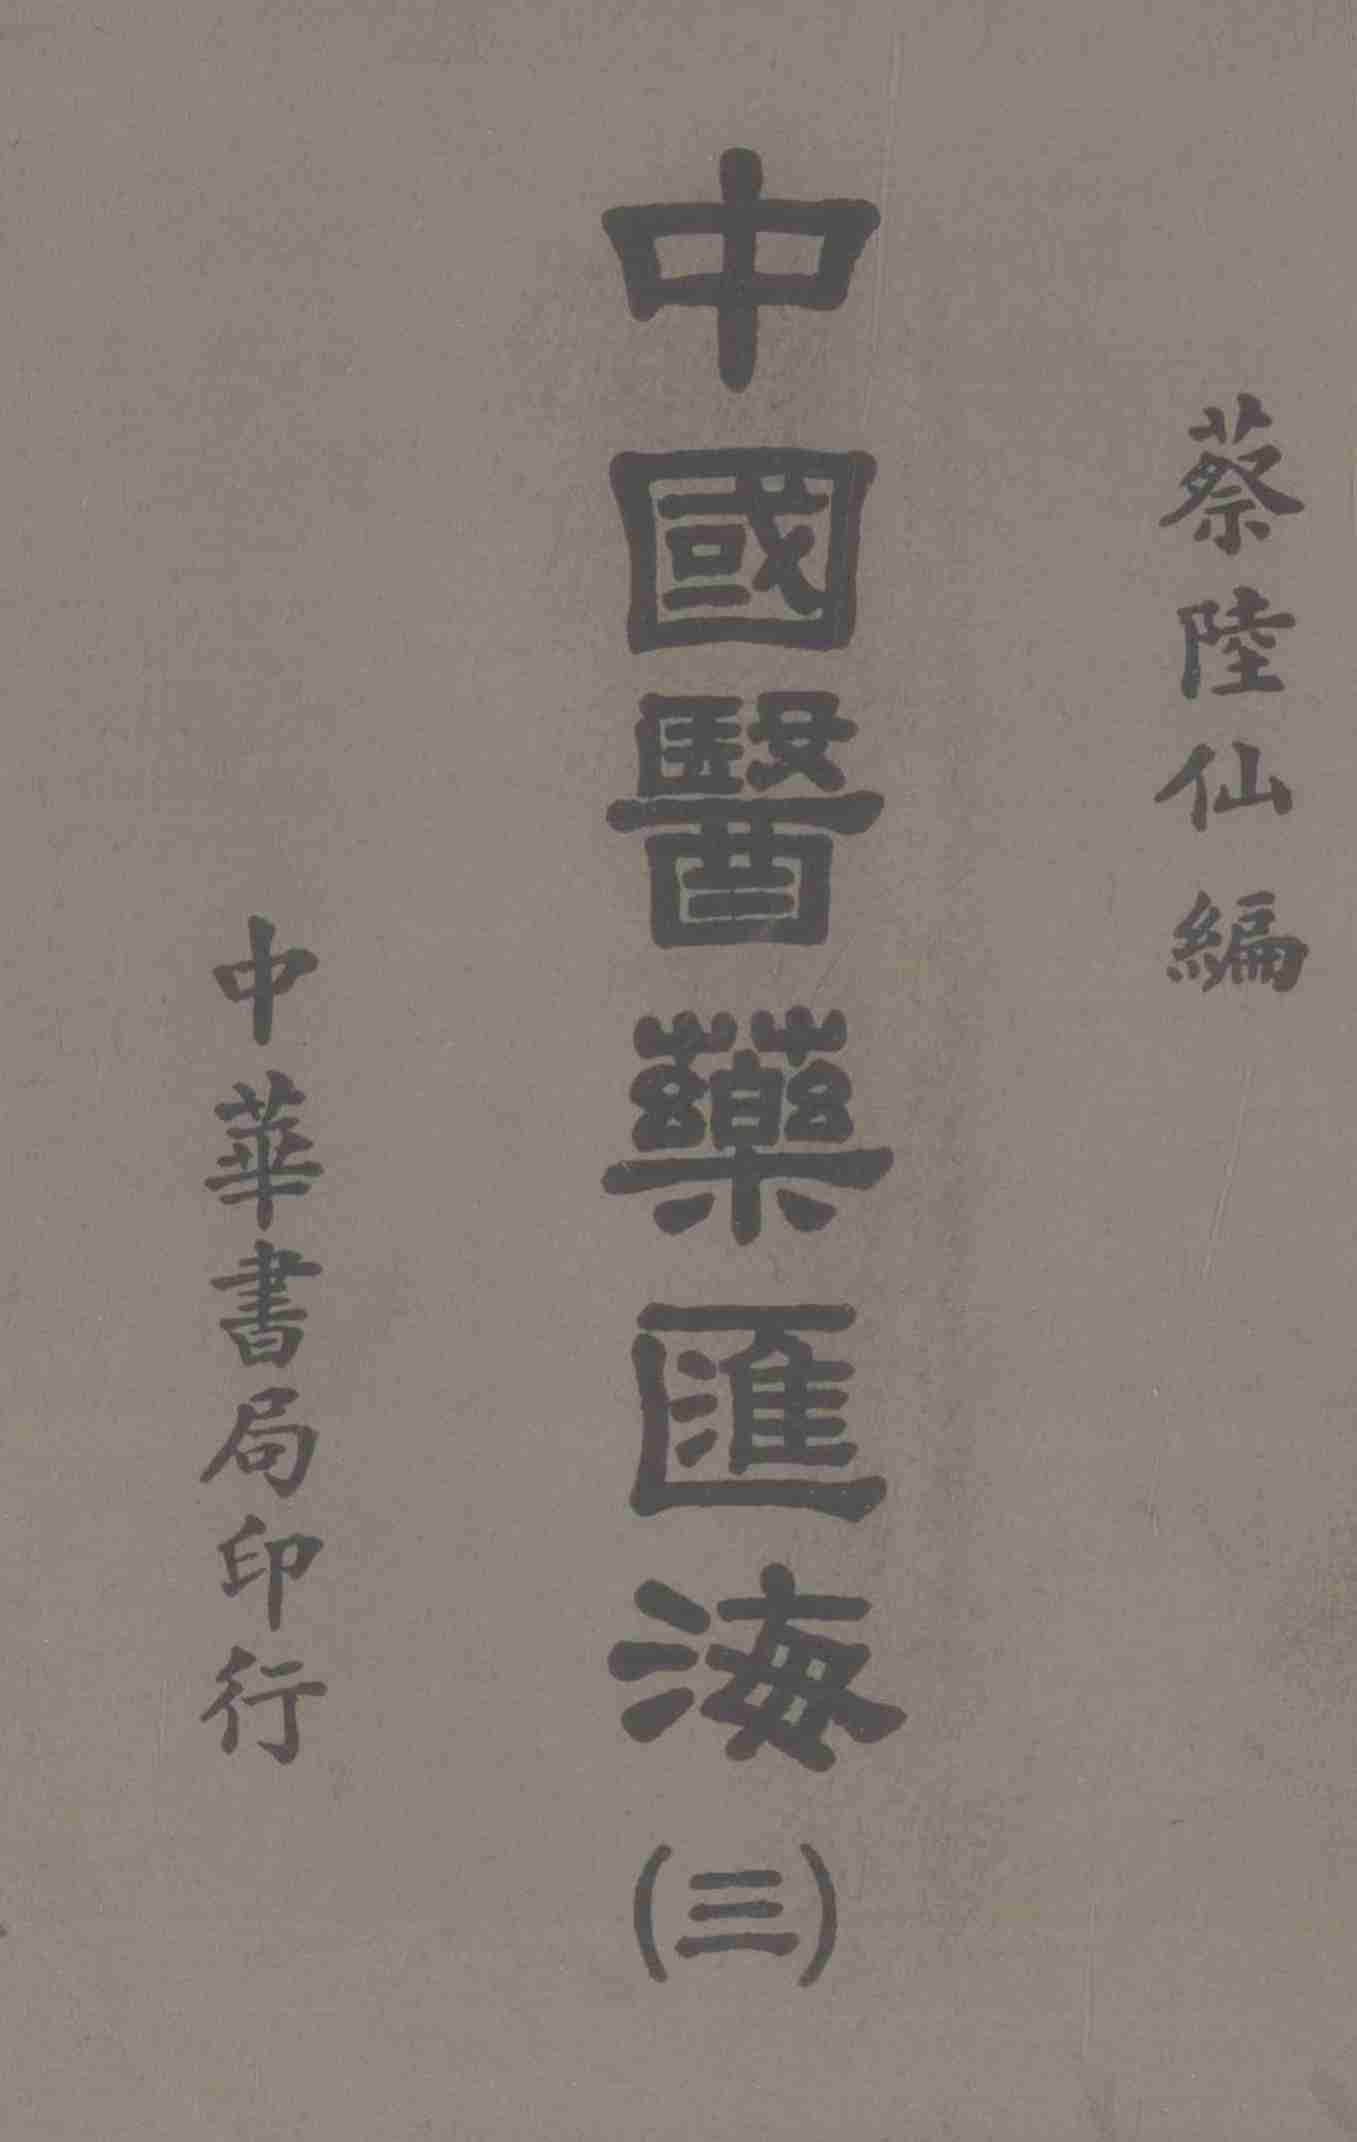 蔡陸仙編
中國醫藥匯海(三)
中華書局印行